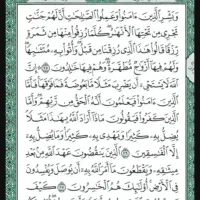 وَبَشِّرِ ٱلَّذِينَ ءَامَنُوا۟ وَعَمِلُوا۟ ٱلصَّٰلِحَٰتِ أَنَّ لَهُمْ جَنَّٰتٍ
تَجْرِى مِن تَحْتِهَا ٱلْأَنْهَٰرُ كُلَّمَا رُزِقُوا۟ مِنْهَا مِن ثَمَرَةٍ
رِّزْقًا قَالُوا۟ هَٰذَا ٱلَّذِى رُزِقْنَا مِن قَبْلُ وَأُتُوا۟ بِهِۦ مُتَشَٰبِهًا
وَلَهُمْ فِيهَآ أَزْوَٰجٌ مُّطَهَّرَةٌ وَهُمْ فِيهَا خَٰلِدُونَ ٢٥ ۞ إِنَّ
ٱللَّهَ لَا يَسْتَحْىِۦٓ أَن يَضْرِبَ مَثَلًا مَّا بَعُوضَةً فَمَا فَوْقَهَا فَأَمَّا
ٱلَّذِينَ ءَامَنُوا۟ فَيَعْلَمُونَ أَنَّهُ ٱلْحَقُّ مِن رَّبِّهِمْ وَأَمَّا
ٱلَّذِينَ كَفَرُوا۟ فَيَقُولُونَ مَاذَآ أَرَادَ ٱللَّهُ بِهَٰذَا مَثَلًا
يُضِلُّ بِهِۦ كَثِيرًا وَيَهْدِى بِهِۦ كَثِيرًا وَمَا يُضِلُّ بِهِۦٓ
إِلَّا ٱلْفَٰسِقِينَ ٢٦ ٱلَّذِينَ يَنقُضُونَ عَهْدَ ٱللَّهِ مِنۢ بَعْدِ
مِيثَٰقِهِۦ وَيَقْطَعُونَ مَآ أَمَرَ ٱللَّهُ بِهِۦٓ أَن يُوصَلَ وَيُفْسِدُونَ
فِى ٱلْأَرْضِ أُو۟لَٰٓئِكَ هُمُ ٱلْخَٰسِرُونَ ٢٧ كَيْفَ